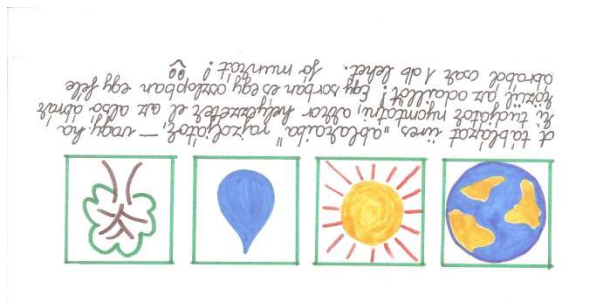 A táblázat üres „ablakaiba” rajzoljátok, – vagy ha
ki tudjátok nyomtatni, akkor helyezzétek el az alsó ábrák
közül az odaillőt! Egy sorban és egy oszlopban egy féle
ábrából csak 1 db lehet. Jó munkát!